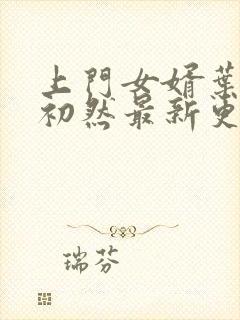 上門女婿葉
初然最新更
瑞芬